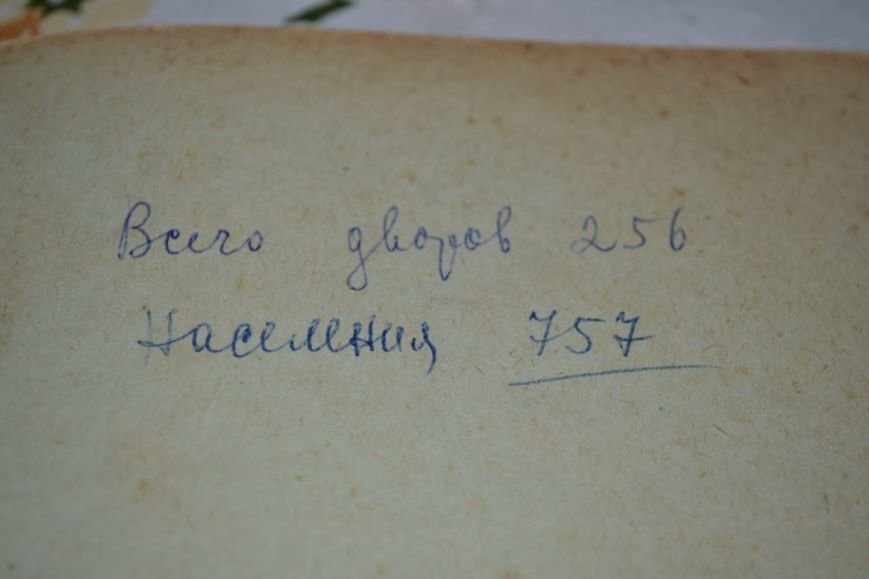 Всего дворов 256
Населения 757